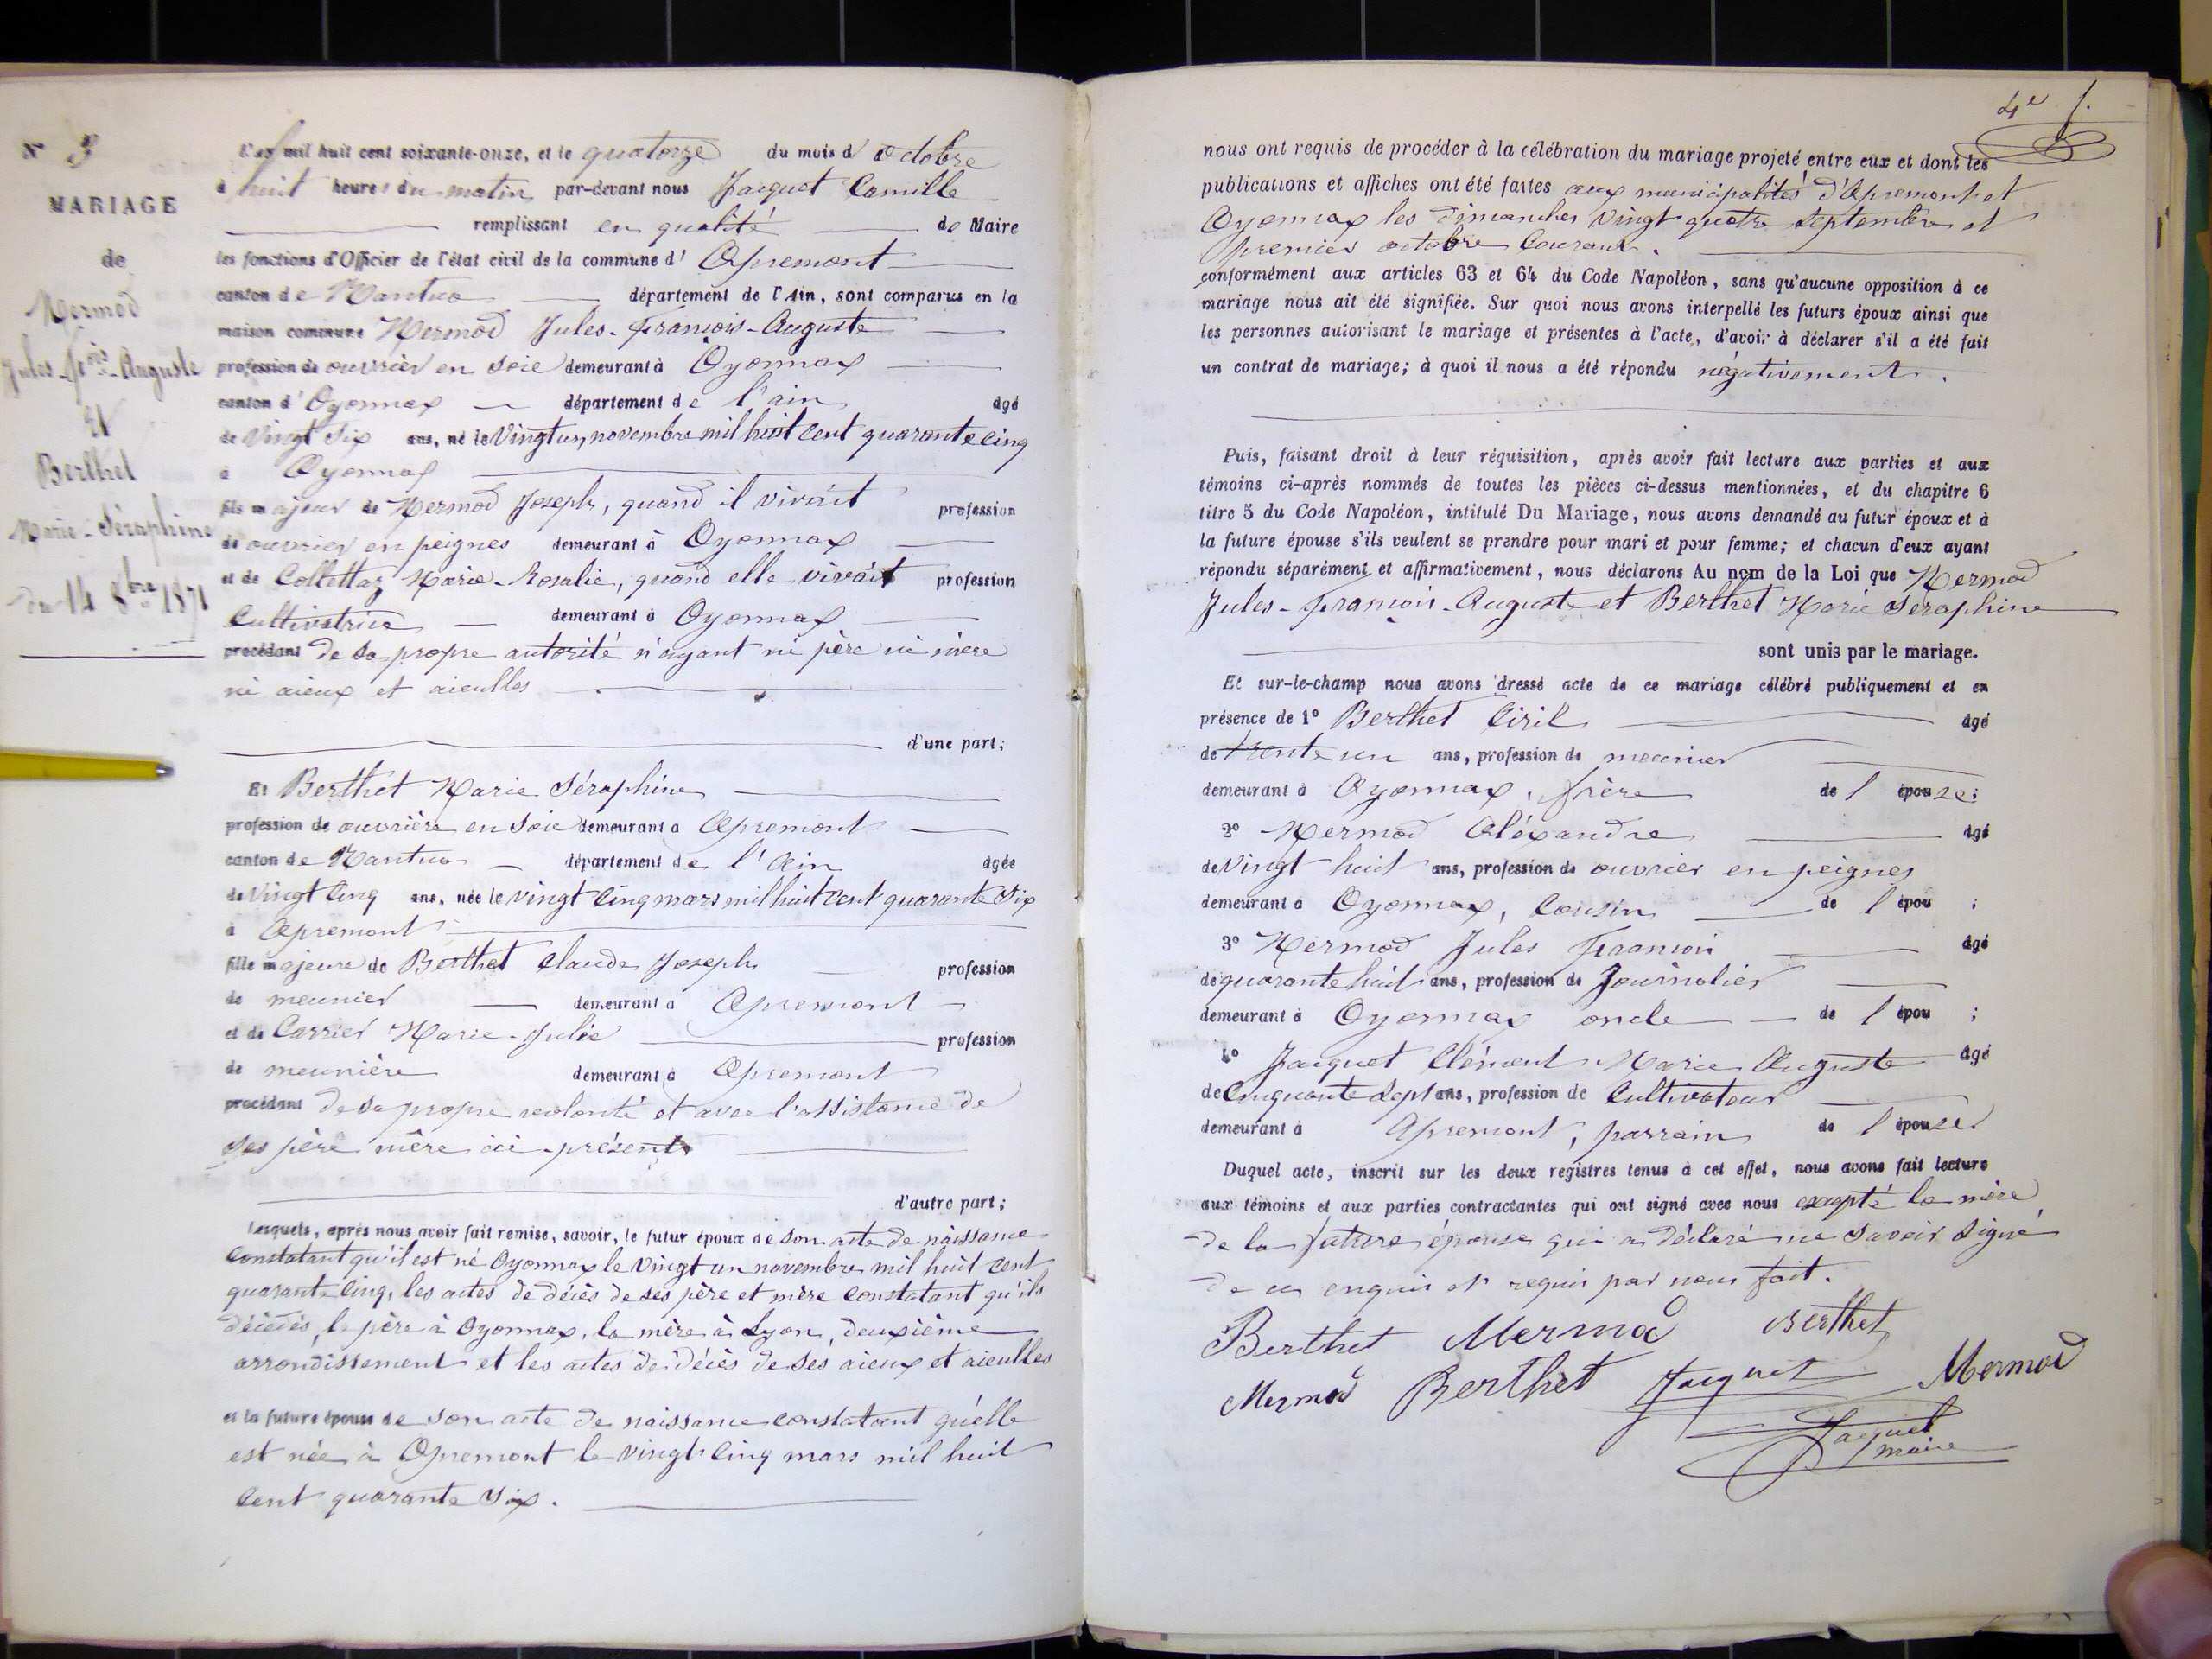 N° 3
MARIAGE
de
Mermod
Jules-fois-Auguste
Et
Berthet
Marie-Séraphine
du 14 8bre 1871
L'an mil huit cent soixante-onze, et le quatorze du mois d'octobre
à huit heures du matin par-devant nous Jacquet Camille
remplissant en qualité de Maire
les fonctions d'Officier de l'état civil de la commune d'Apremont
canton de Nantua département de l'Ain, sont comparus en la
maison commune Mermod Jules-François-Auguste
profession de ouvrier en soie demeurant à Oyonnax
canton d'Oyonnax département de l'ain âgé
de Vingt Six ans, né le Vingt un novembre mil huit cent quarante cinq
à Oyonnax
fils majeur de Mermod Joseph, quand il vivait profession
de ouvrier en peignes demeurant à Oyonnax
et de Collettaz Marie-Rosalie, quand elle vivait profession
Cultivatrice demeurant à Oyonnax
procédant de sa propre autorité n'ayant ni père ni mère
ni aieux et aieulles
d'une part;
Et Berthet Marie Séraphine
profession de ouvrière en soie demeurant à Apremont
canton de Nantua département de l'Ain âgée
de Vingt Cinq ans, née le vingt Cinq mars mil huit Cent quarante Six
à Apremont
fille majeure de Berthet Claude Joseph profession
de meunier demeurant à Apremont
et de Carrier Marie-Julie profession
de meunière demeurant à Apremont
procédant de sa propre volonté et avec l'assistance de
ses père mère ici-présents
d'autre part;
Lesquels, après nous avoir fait remise, savoir, le futur époux de son acte de naissance
Constatant qu'il est né Oyonnax le Vingt un novembre mil huit cent
quarante Cinq, les actes de décès de ses père et mère Constatant qu'ils
décédés, le père à Oyonnax, la mère à Lyon, deuxième
arrondissement et les actes de décès de ses aieux et aieulles
et la future épouse de son acte de naissance constatant qu'elle
est née à Apremont le vingt Cinq mars mil huit
Cent quarante Six.
4e f.
nous ont requis de procéder à la célébration du mariage projeté entre eux et dont les
publications et affiches ont été faites aux municipalités d'Apremont et
Oyonnax les Dimanches Vingt quatre Septembre et
premier octobre Courant.
conformément aux articles 63 et 64 du Code Napoléon, sans qu'aucune opposition à ce
mariage nous ait été signifiée. Sur quoi nous avons interpellé les futurs époux ainsi que
les personnes autorisant le mariage et présentes à l'acte, d'avoir à déclarer s'il a été fait
un contrat de mariage; à quoi il nous a été répondu négativement.
Puis, faisant droit à leur réquisition, après avoir fait lecture aux parties et aux
témoins ci-après nommés de toutes les pièces ci-dessus mentionnées, et du chapitre 6
titre 5 du Code Napoléon, intitulé Du Mariage, nous avons demandé au futur époux et à
la future épouse s'ils veulent se prendre pour mari et pour femme; et chacun d'eux ayant
répondu séparément et affirmativement, nous déclarons Au nom de la Loi que Mermod
Jules-François-Auguste et Berthet Marie Séraphine
sont unis par le mariage.
Et sur-le-champ nous avons dressé acte de ce mariage célébré publiquement et en
présence de 1° Berthet Ciril âgé
de trente un ans, profession de meunier
demeurant à Oyonnax, frère de l'épouse;
2° Mermod Aléxandre âgé
de Vingt huit ans, profession de ouvrier en peignes
demeurant à Oyonnax, Cousin de l'épou ;
3° Mermod Jules François âgé
de quarante huit ans, profession de Journalier
demeurant à Oyonnax oncle de l'épou ;
4° Jacquet Clément Marie Auguste âgé
de Cinquante sept ans, profession de Cultivateur
demeurant à Apremont, parrain de l'épouse
Duquel acte, inscrit sur les deux registres tenus à cet effet, nous avons fait lecture
aux témoins et aux parties contractantes qui ont signé avec nous excepté la mère
de la future épouse qui a déclaré ne savoir signé
de ce enquis et requis par nous fait.
Berthet Mermod Berthet
Mermod Berthet Jacquet Mermod
Jacquet
maire